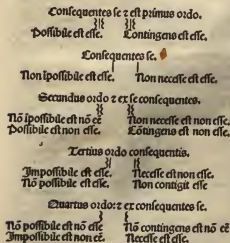 Consequentes se ⁊ est primus ordo.
Possibile est esse. Contingens est esse.
Consequentes se.
Non ipossibile est esse. Non necesse est esse.
Secundus ordo ⁊ ex se consequentes.
Nō ipossibile est nō eē Non necesse est non esse.
Possibile est non esse. Cōtingens est non esse.
Tertius ordo consequentis.
Impossibile est esse. Necesse est non esse.
Nō possibile est esse. Non contigit esse
Quartus ordo: ⁊ ex se consequentes.
Nō possibile est nō esse Nō contingens est nō esse
Impossibile est non eē. Necesse est esse.